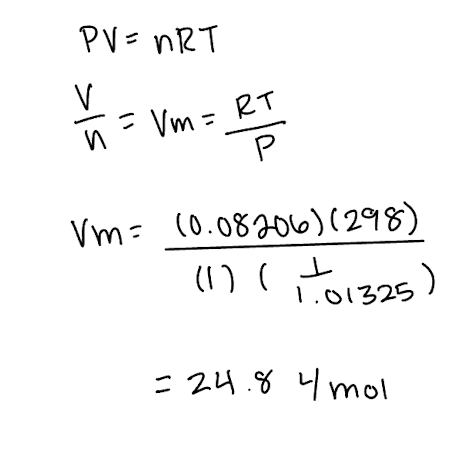 PV = nRT
V/n = Vm = RT/P
Vm = (0.08206)(298) / (1) (1/1.01325)
= 24.8 L/mol